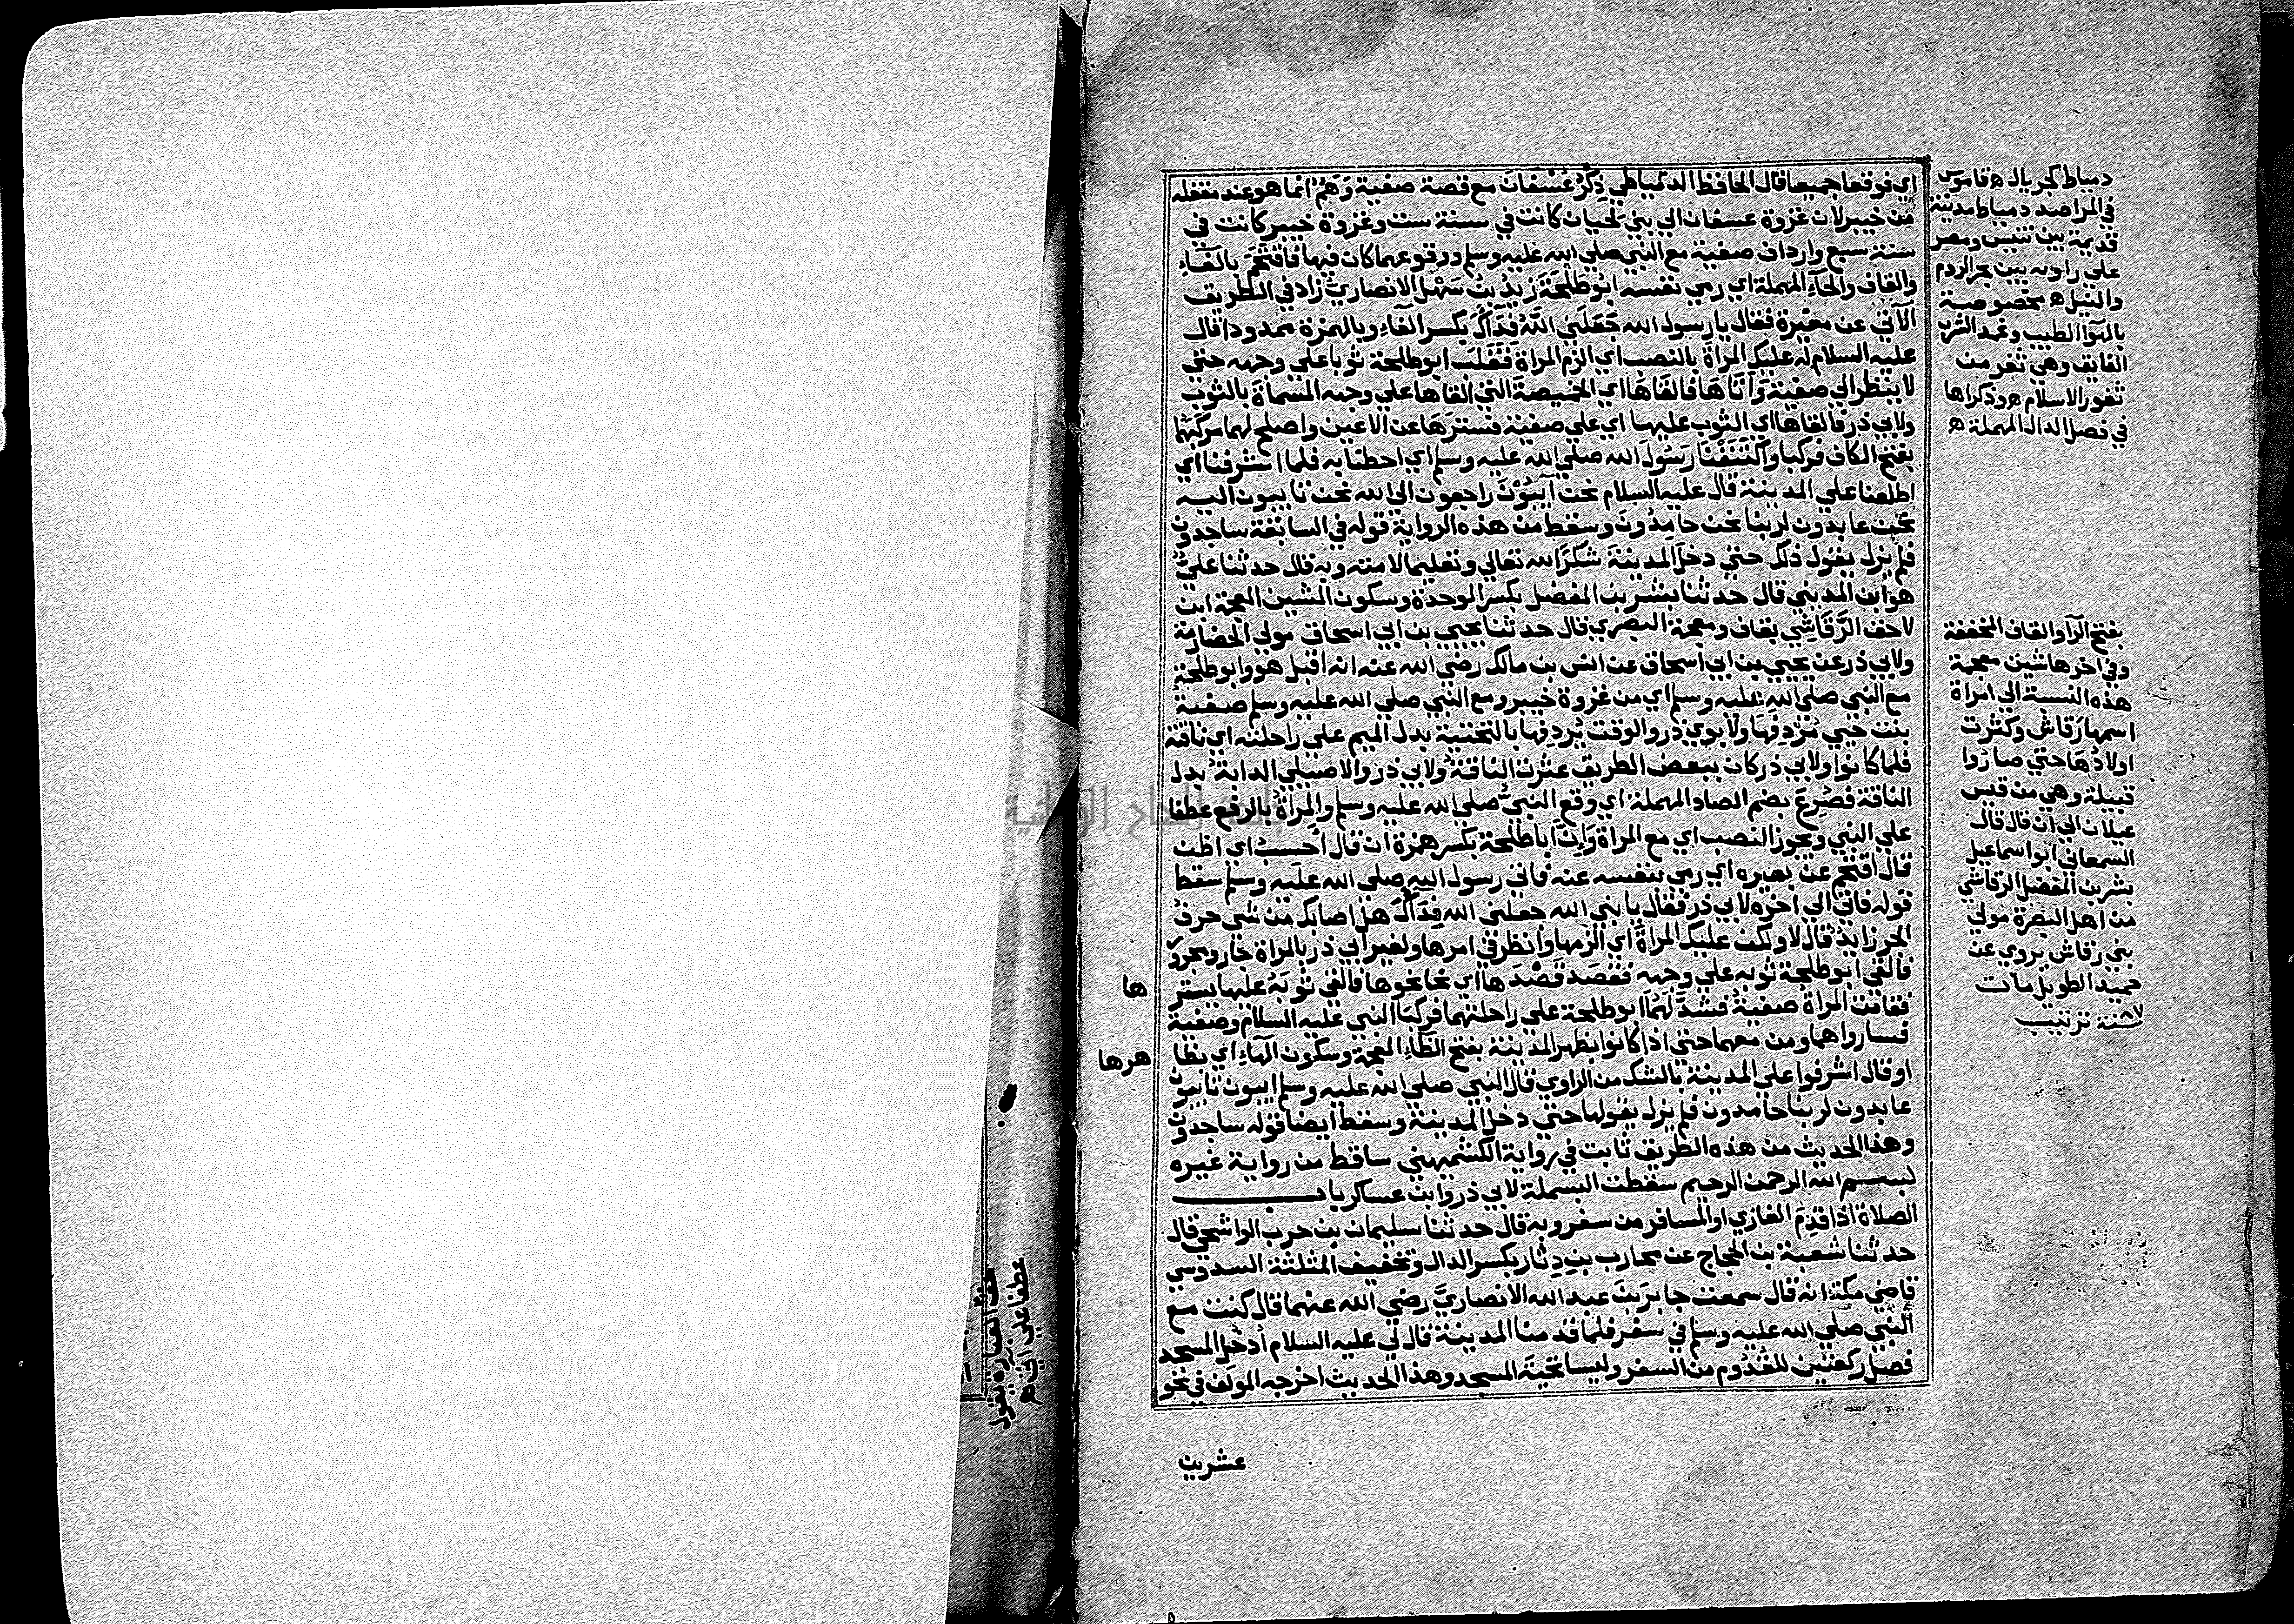 اي فوقعا جميعا قال الحافظ الدمياطي ذِكْرُ عُسْفَانَ مع قصة صفية وَهَمٌ انما هو عند مقفله
من خيبر لان غزوة عسفان الي بني لحيان كانت في سنة ست وغزوة خيبر كانت في
سنة سبع وارداف صفية مع النبي صلي الله عليه وسلم ووقوعهما كان فيها فاقتحَمَ بالفاءِ
والقاف والحاءِ المهملة اي رمي نفسه ابوُ طلحَةَ زيدُ بنُ سَهْلٍ الانصاريُّ زاد في الطريق
الآتي عن بعيره فقال يا رسول الله جَعَلَنِي اللهُ فِدَآكَ بكسر الفاءِ وبالهمزة ممدودا قال
عليه السلام له عليكَ المراةَ بالنصب اي الزم المراة فَقَلَبَ ابو طلحة ثوبا علي وجهه حتي
لا ينظر الي صفية وَأَتَاهَا فالقَاهَا اي الخميصةَ التي القاها علي وجهه المسماةَ بالثوب
ولابي ذر فالقاها اي الثوب عليها اي علي صفية فسترَهَا عن الاعين واصلح لهما مركبَهُمَا
بفتح الكاف فركبا واكْتَنَفْنَا رَسُولَ الله صلي الله عليه وسلم اي احطنا به فلما اشرفنا اي
اطلعنا علي المدينة قال عليه السلام نحن آيِبُوْنَ راجعون الي الله نحن تايبون اليه
نحن عابدون لربنا نحن حامِدُونَ وسقط من هذه الرواية قوله في السابقة ساجدون
فلم يزل يقول ذلك حتي دخل المدينةَ شكرًا لله تعالي وتعليما لامته وبه قال حدثنا عليٌّ
هو ابن المديني قال حدثنا بشر بن المفضل بكسر الوحدة وسكون الشين المعجمة ابن
لاحق الرَّقَاشِي بقاف ومعجمة البصري قال حدثنا يحيي بن ابي اسحاق مولي الحضارمة
ولابي ذر عن يحيي بن ابي اسحاق عن انس بن مالك رضي الله عنه انه اقبل هو وابو طلحة
مع النبي صلي الله عليه وسلم اي من غزوة خيبر ومع النبي صلي الله عليه وسلم صفية
بنت حيي مُرْدِفهَا ولابوي ذر والوقت يُرْدِفها بالتحتية بدل الميم علي راحلته اي ناقته
فلما كانوا ولابي ذر كان ببعض الطريق عثرت الناقة ولابي ذر والاصيلي الدابة بدل
الناقة فصُرِعَ بضم الصاد المهملة اي وقع النبيُّ صلي الله عليه وسلم والمراةُ بالرفع عطفا
علي النبي ويجوز النصب اي مع المراة وَاِنَّ ابا طلحة بكسر همزة ان قال أَحسبُ اي اظن
قال اقتحم عن بعيره اي رمي بنفسه عنه فاتي رسول الله صلي الله عليه وسلم سقط
قوله فاتي الي اخره لابي ذر فقال يا نبي الله جعلني الله فِدَآكَ هل اصابك من شي حرف
الجر زايد قال لا ولكن عليك المراةَ اي الزمها وانظر في امرها ولغير ابي ذر بالمراة جار ومجرور
فالقي ابو طلحة ثوبه علي وجهه فقصَد قَصْدَهَا اي نحا نحوها فالقي ثوبَهُ عليها ليستر
ها
فقامت المراة صفية فشدَّ لهُمَا ابو طلحة علي راحلتهما فركبَا النبي عليه السلام وصفية
فساروا هما ومن معهما حتي اذا كانوا بظهر المدينة بفتح الظاءِ المعجمة وسكون الهاءِ اي بظا
هرها
او قال اشرفوا علي المدينة بالشك من الراوي قال النبي صلي الله عليه وسلم ايبون تايبون
عابدون لربنا حامدون فلم يزل يقولها حتي دخل المدينة وسقط ايضا قوله ساجدون
وهذا الحديث من هذه الطريق ثابت في رواية الكشميهني ساقط من رواية غيره
بسم الله الرحمن الرحيم سقطت البسملة لابي ذر وابن عساكر باب
الصلاة اذا قدِمَ الغازي او المسافر من سفر وبه قال حدثنا سليمان بن حرب الواشحي قال
حدثنا شعبة بن الحجاج عن محارب بن دِثار بكسر الدال وتخفيف المثلثة السدوسي
قاضي مكة انه قال سمعت جابرَ بنَ عبد الله الانصاريَّ رضي الله عنهما قال كنت مع
النبي صلي الله عليه وسلم في سفر فلما قدمنا المدينة قال لي عليه السلام أدخل المسجد
فصل ركعتين للقُدُوم من السفر وليسا تحيةَ المسجد وهذا الحديث اخرجه المولف في نحو
عشرين
دمياط كجريال ه قاموس
في المراصد دمياط مدينة
قديمة بين تنيس ومصر
علي زاوية بين بحر الروم
والنيل ه مخصوصة
بالهوا الطيب
الفايق وهي ثغر من
ثغور الاسلام ه وذكراها
في فصل الدال المهملة ه
بفتح الرآ والقاف المخففة
وفي اخرها شين معجمة
هذه النسبة الي امراة
اسمها رَقاش وكثرت
اولادُهَا حتي صاروا
قبيلة وهي من قيس
عيلان الي ان قال قال
السمعاني ابو اسماعيل
بشر بن المفضل الرقاشي
من اهل البصرة مولي
بني رقاش يروي عن
حميد الطويل مات
سنة ٨٧ ترتيب
جامعة النجاح الوطنية